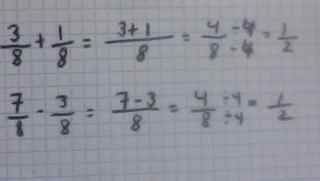 3/8 + 1/8 = 3+1/8 = 4/8 ÷4/÷4 = 1/2
7/8 - 3/8 = 7-3/8 = 4/8 ÷4/÷4 = 1/2